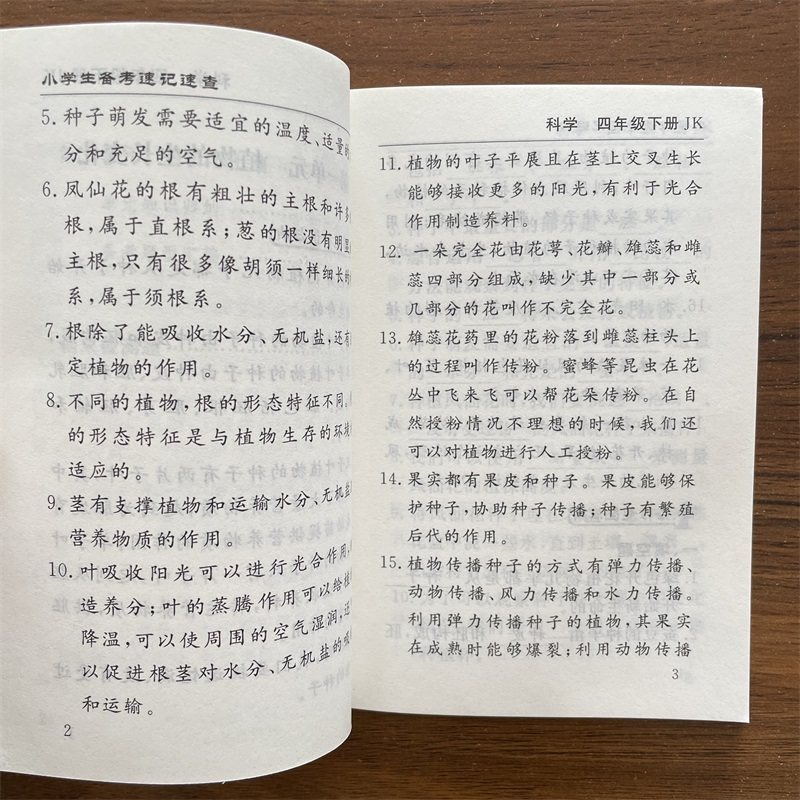 小学生备考速记速查
5. 种子萌发需要适宜的温度、适量的
分和充足的空气。
6. 凤仙花的根有粗壮的主根和许多
根，属于直根系；葱的根没有明显
主根，只有很多像胡须一样细长的
系，属于须根系。
7. 根除了能吸收水分、无机盐，还有
定植物的作用。
8. 不同的植物，根的形态特征不同。
的形态特征是与植物生存的环境
适应的。
9. 茎有支撑植物和运输水分、无机盐
营养物质的作用。
10. 叶吸收阳光可以进行光合作用，
造养分；叶的蒸腾作用可以给植
降温，可以使周围的空气湿润，还
以促进根茎对水分、无机盐的吸
和运输。
2
科学 四年级下册 JK
11. 植物的叶子平展且在茎上交叉生长
能够接收更多的阳光，有利于光合
作用制造养料。
12. 一朵完全花由花萼、花瓣、雄蕊和雌
蕊四部分组成，缺少其中一部分或
几部分的花叫作不完全花。
13. 雄蕊花药里的花粉落到雌蕊柱头上
的过程叫作传粉。蜜蜂等昆虫在花
丛中飞来飞可以帮花朵传粉。在自
然授粉情况不理想的时候，我们还
可以对植物进行人工授粉。
14. 果实都有果皮和种子。果皮能够保
护种子，协助种子传播；种子有繁殖
后代的作用。
15. 植物传播种子的方式有弹力传播、
动物传播、风力传播和水力传播。
利用弹力传播种子的植物，其果实
在成熟时能够爆裂；利用动物传播
3